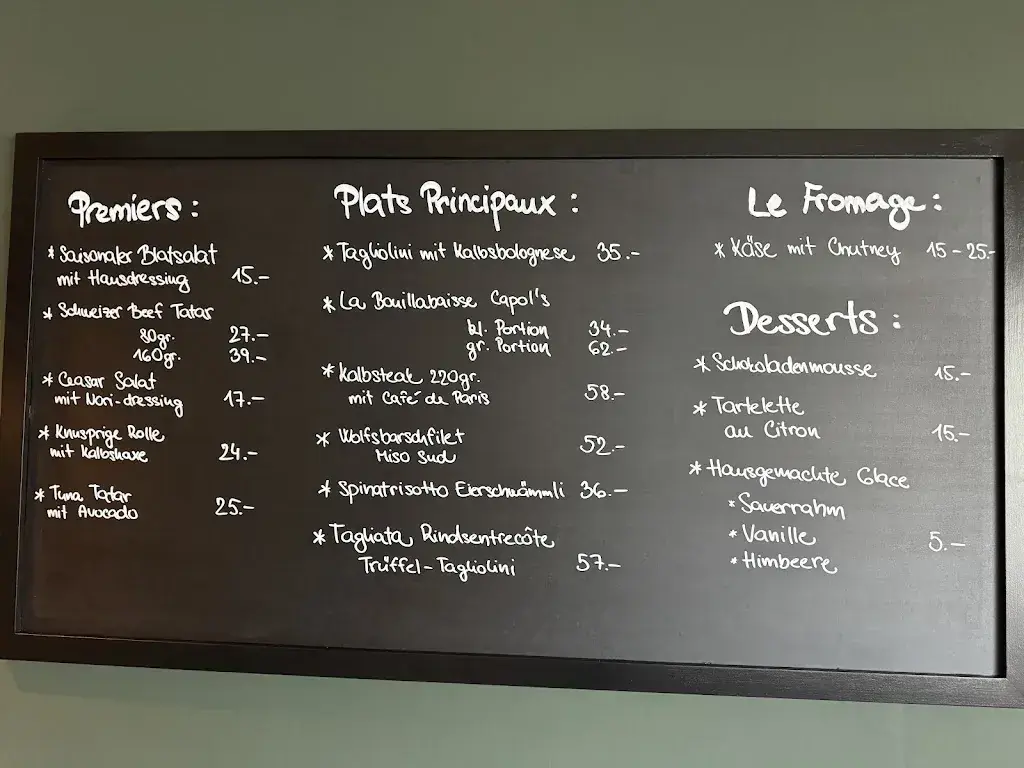 Premiers :
* Saisonaler Blatsalat
mit Hausdressing 15.-
* Schweizer Beef Tatar
80gr. 27.-
160gr. 39.-
* Ceasar Salat
mit Nori-dressing 17.-
* Knusprige Rolle
mit Kalbshaxe 24.-
* Tuna Tatar
mit Avocado 25.-
Plats Principaux :
* Tagliolini mit Kalbsbolognese 35.-
* La Bouillabaisse Capol's
kl. Portion 34.-
gr. Portion 62.-
* Kalbsteak 220gr.
mit Café de Paris 58.-
* Wolfsbarschfilet
Miso Sud 52.-
* Spinatrisotto Eierschwämmli 36.-
* Tagliata Rindsentrecôte
Trüffel-Tagliolini 57.-
Le Fromage :
* Käse mit Chutney 15-25.-
Desserts :
* Schokoladenmousse 15.-
* Tartelette
au Citron 15.-
* Hausgemachte Glace
* Sauerrahm
* Vanille 5.-
* Himbeere